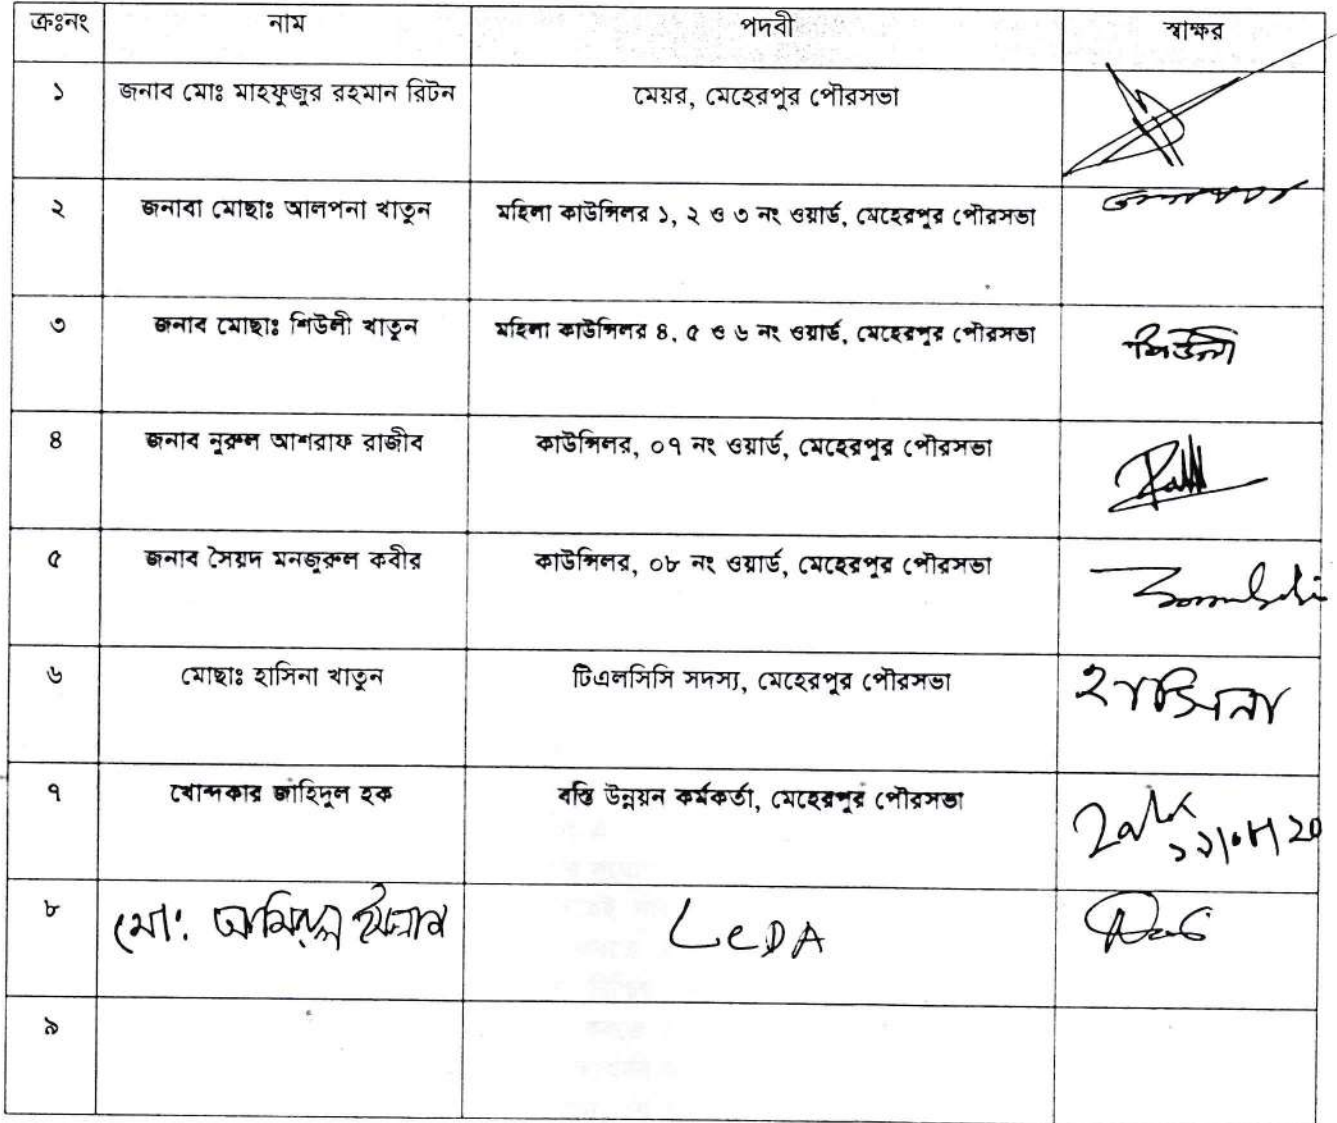 ক্রঃনং নাম পদবী স্বাক্ষর
১ জনাব মোঃ মাহফুজুর রহমান রিটন মেয়র, মেহেরপুর পৌরসভা
২ জনাবা মোছাঃ আলপনা খাতুন মহিলা কাউন্সিলর ১, ২ ও ৩ নং ওয়ার্ড, মেহেরপুর পৌরসভা
৩ জনাব মোছাঃ শিউলী খাতুন মহিলা কাউন্সিলর ৪, ৫ ও ৬ নং ওয়ার্ড, মেহেরপুর পৌরসভা শিউলী
৪ জনাব নুরুল আশরাফ রাজীব কাউন্সিলর, ০৭ নং ওয়ার্ড, মেহেরপুর পৌরসভা
৫ জনাব সৈয়দ মনজুরুল কবীর কাউন্সিলর, ০৮ নং ওয়ার্ড, মেহেরপুর পৌরসভা
৬ মোছাঃ হাসিনা খাতুন টিএলসিসি সদস্য, মেহেরপুর পৌরসভা হাসিনা
৭ খোন্দকার জাহিদুল হক বস্তি উন্নয়ন কর্মকর্তা, মেহেরপুর পৌরসভা
৮ মোঃ আমিরুল ইসলাম LeDA
৯